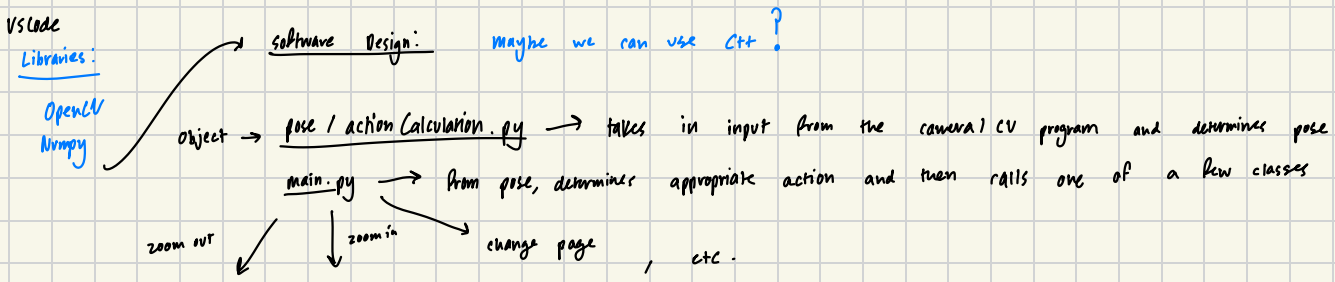 VSCode
Libraries:
OpenCV
Numpy
Software Design: maybe we can use C++?
Object → pose / action Calculation.py → takes in input from the camera / CV program and determines pose
main.py → From pose, determines appropriate action and then calls one of a few classes
zoom out
zoom in
change page , etc.